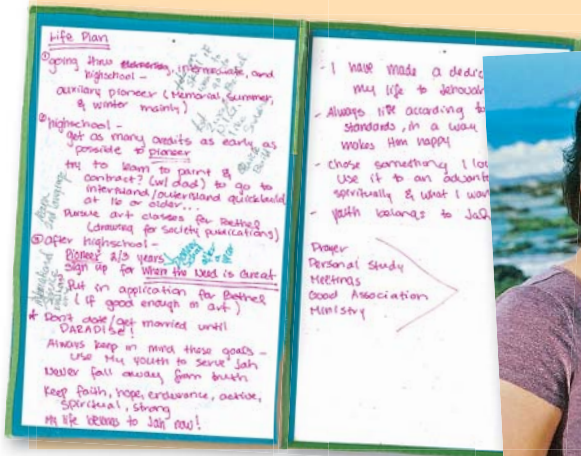 Life Plan
① going thru elementary, intermediate, and
highschool -
auxilary pioneer (Memorial, Summer,
& winter mainly)
② highschool -
get as many credits as early as
possible to pioneer
try to learn to paint &
contract? (w/ dad) to go to
interisland/outerisland quickbuild
at 16 or older...
Pursue art classes for Bethel
(drawing for society publications)
③ after highschool -
Pioneer 2/3 years
Sign up for When the Need is Great
Put in application for Bethel
(if good enough in art)
* Don't date/get married until
PARADISE!
Always keep in mind these goals -
use My youth to serve Jah
Never fall away from truth
Keep faith, hope, endurance, active,
spiritual, strong
My life belongs to Jah now!
- I have made a dedic
my life to Jehovah
- Always live according to
standards, in a way
makes Him happy
- chose something I lo
use it to an advant
spiritually & what I wan
- youth belongs to Jah
Prayer
Personal Study
Meetings
Good Association
Ministry